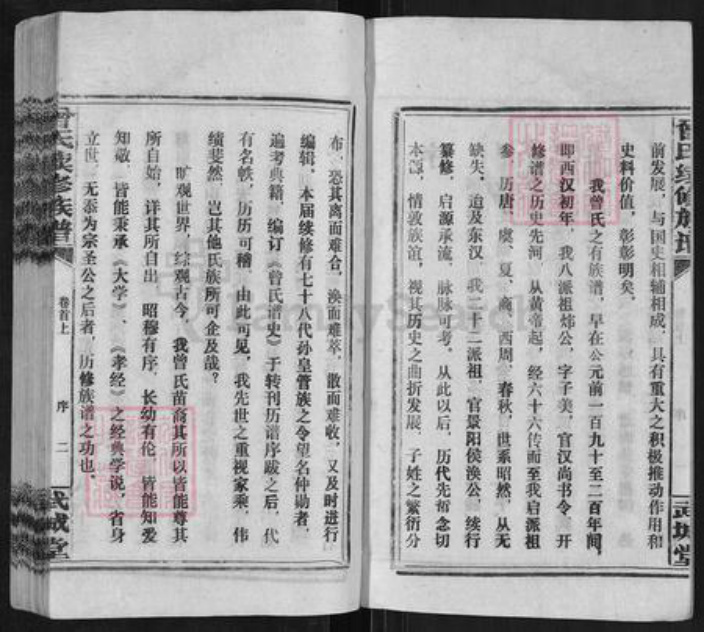 曾氏续修族谱
武城堂
前发展，与国史相辅相成，具有重大之积极推动作用和
史料价值，彰彰明矣。
我曾氏之有族谱，早在公元前一百九十至二百年间，
即西汉初年，我八派祖炜公，字子美，官汉尚书令，开
修谱之历史先河，从黄帝起，经六十六传而至我启派祖
参，历唐、虞、夏、商、西周、春秋，世系昭然，从无
缺失，迨及东汉，我二十二派祖，官景阳侯涣公，续行
纂修，启源承流，脉脉可考，从此以后，历代先哲念切
本源，情敦族谊，视其历史之曲折发展，子姓之繁衍分
布，恐其离而难合，涣而难萃，散而难收，又及时进行
编辑，本届续修有七十八代孙皇管族之令望名仲勋者，
遍考典籍，编订《曾氏谱史》于转刊历谱序跋之后，代
有名帙，历历可稽，由此可见，我先世之重视家乘，伟
绩斐然，岂其他氏族所可企及哉？
旷观世界，综观古今，我曾氏苗裔其所以皆能尊其
所自始，详其所自出，昭穆有序，长幼有伦，皆能知爱
知敬，皆能秉承《大学》、《孝经》之经典学说，省身
立世，无忝为宗圣公之后者，历修族谱之功也。
曾氏续修族谱
卷首上
序
二
武城堂
FamilySearch